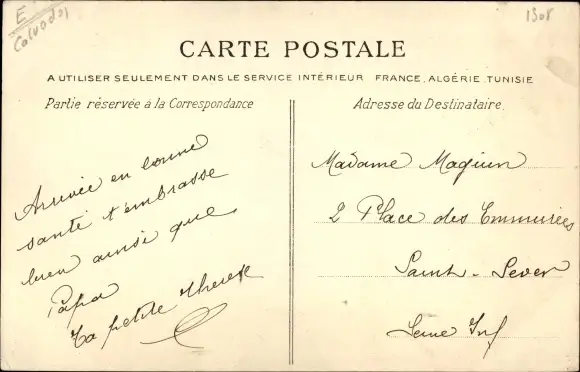 E
Calvados
1308
CARTE POSTALE
A UTILISER SEULEMENT DANS LE SERVICE INTÉRIEUR FRANCE, ALGÉRIE, TUNISIE
Partie réservée à la Correspondance
Arrivée en bonne
santé t'embrasse
bien ainsi que
Papa
Ta petite therese
Adresse du Destinataire
Madame Maguin
2 Place des Emmurées
Saint-Sever
Seine Inf